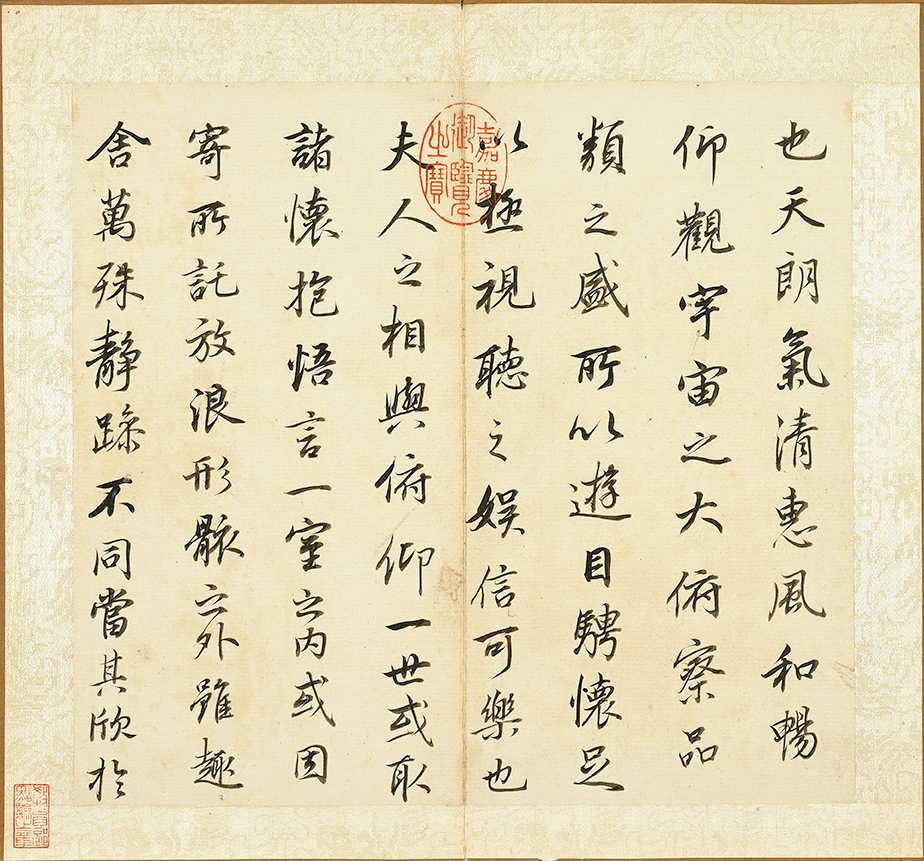 也天朗氣清惠風和暢
仰觀宇宙之大俯察品
類之盛所以遊目騁懷足
以極視聽之娛信可樂也
夫人之相與俯仰一世或取
諸懷抱悟言一室之內或因
寄所託放浪形骸之外雖趣
舍萬殊靜躁不同當其欣於
嘉慶
御覽
之寶